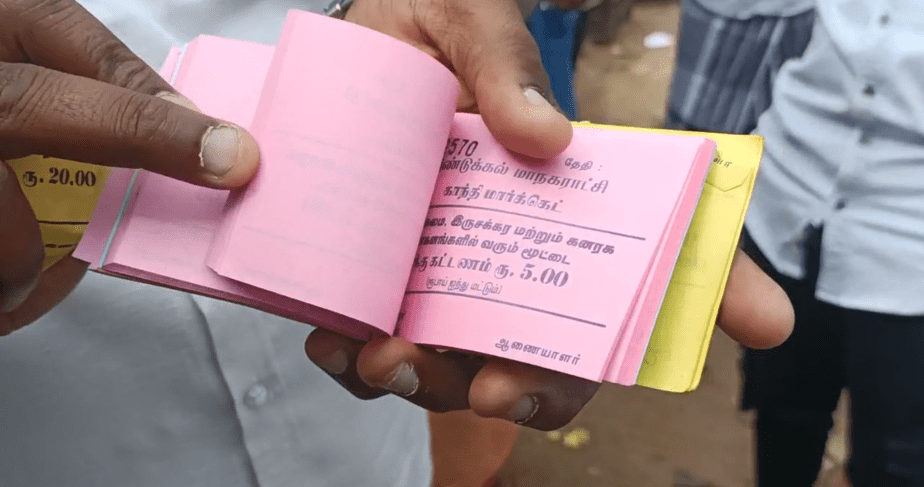 ரூ. 20.00
570
தேதி :
ண்டுக்கல் மாநகராட்சி
காந்தி மார்க்கெட்
இருசக்கர மற்றும் கனரக
வரும் மூட்டை
கட்டணம் ரூ. 5.00
(ரூபாய் ஐந்து மட்டும்)
ஆணையாளர்